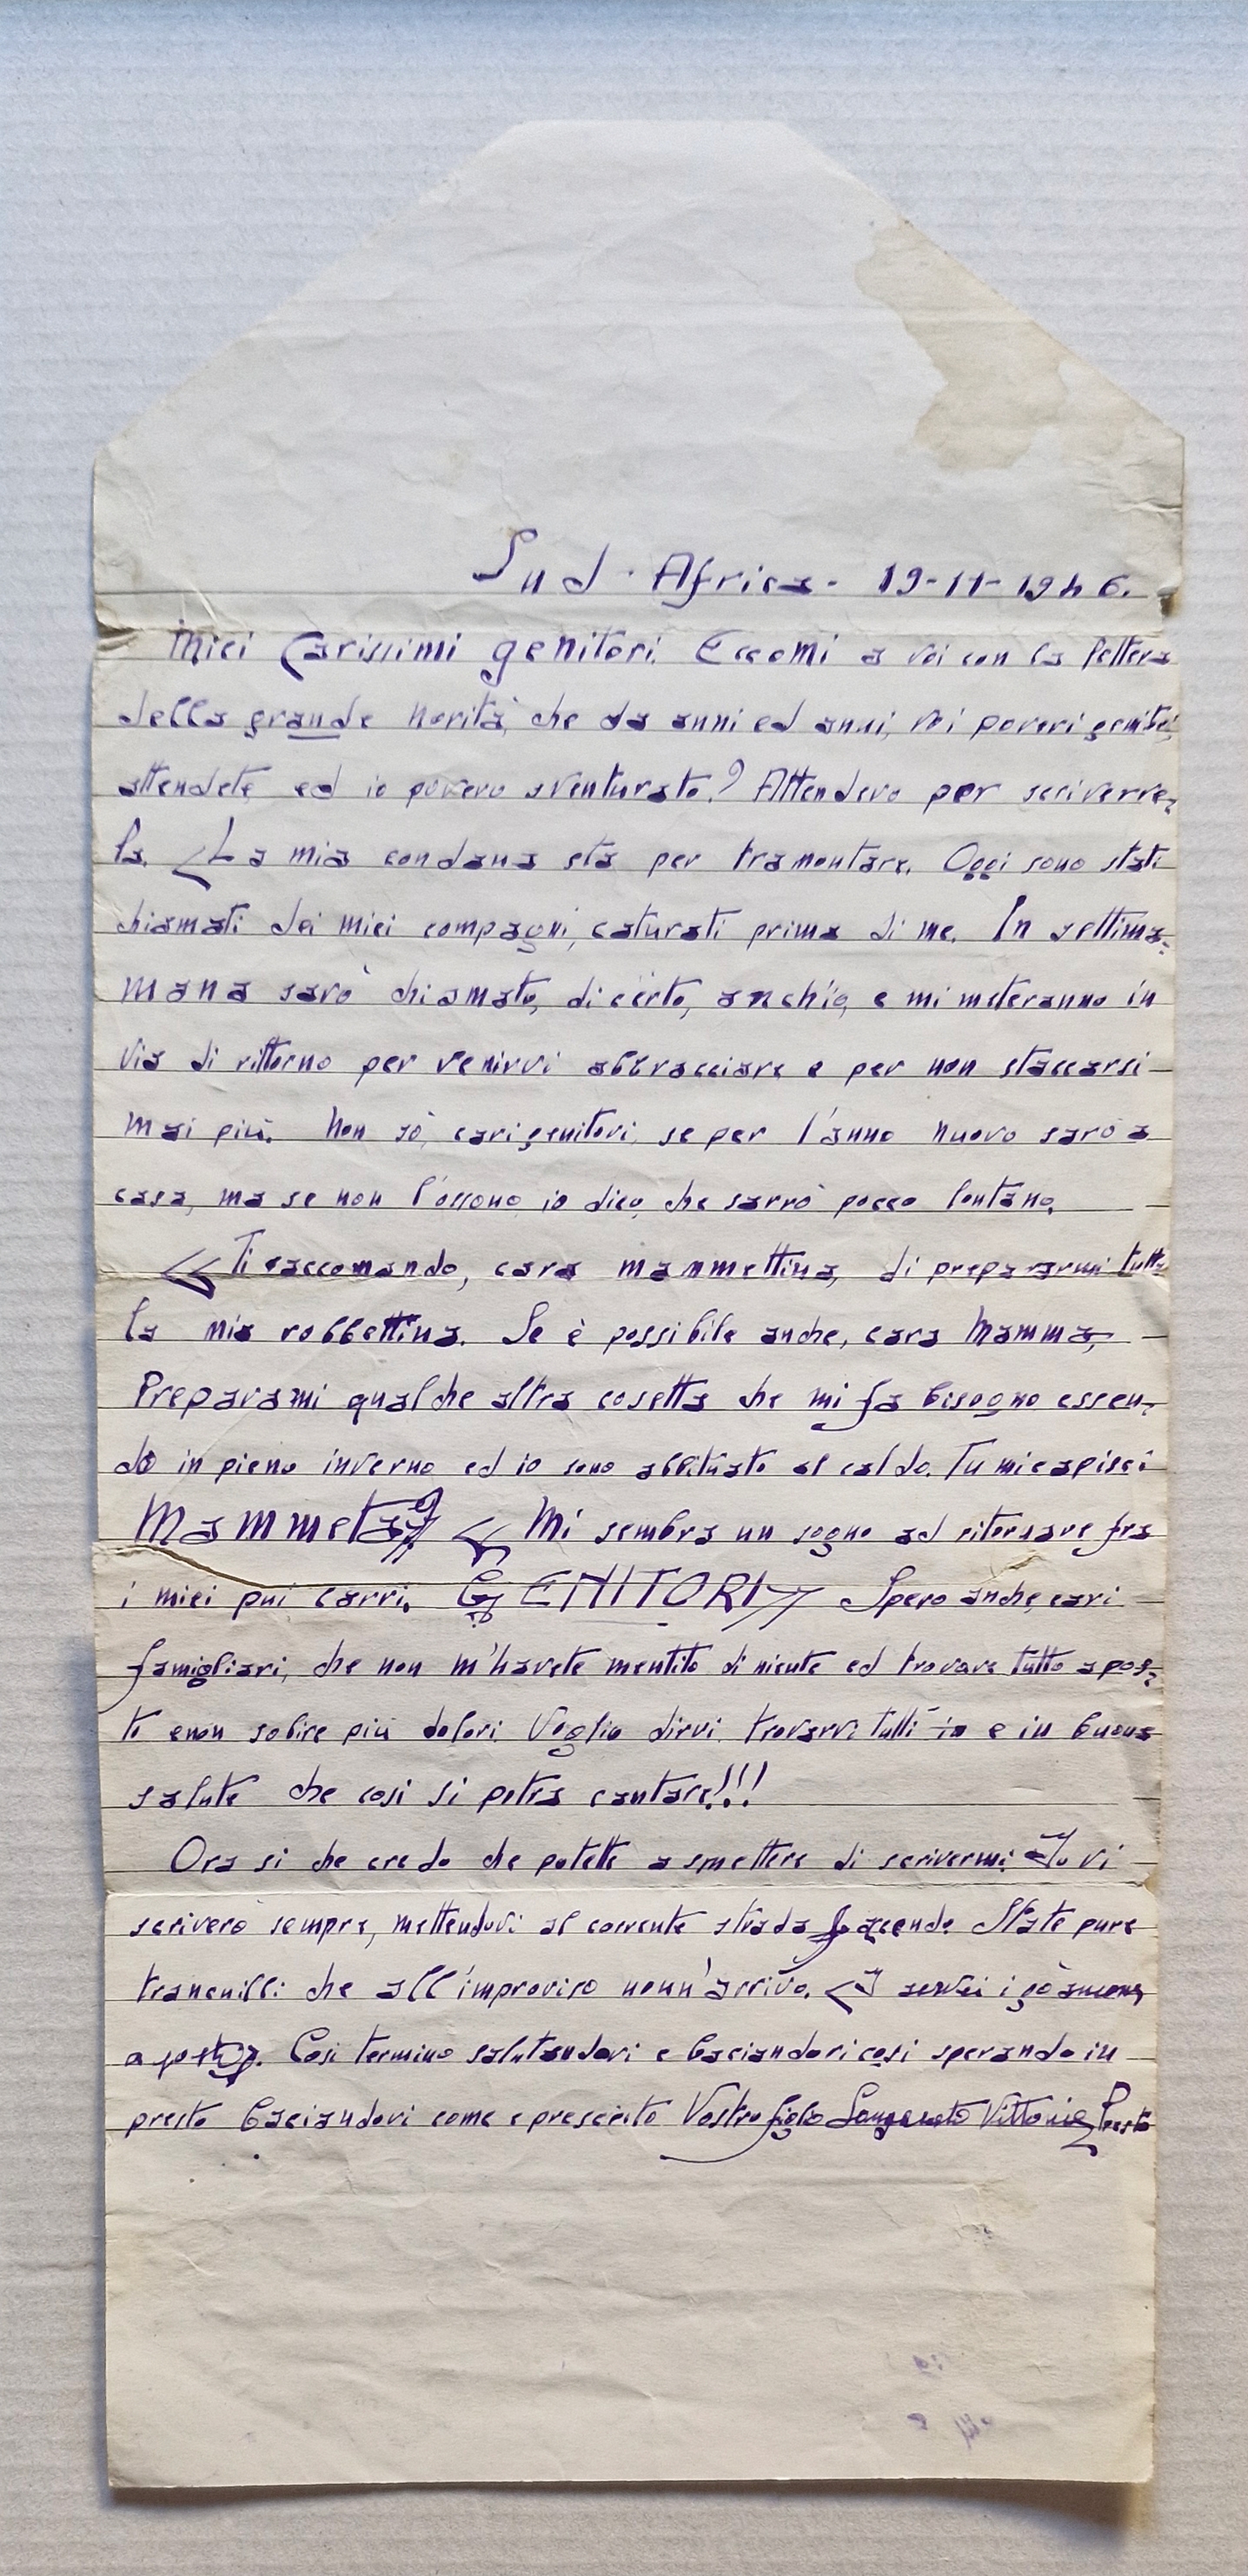 Sud. Africa- 19-11-1946.
Miei Carissimi genitori. Eccomi a voi con la lettera
della grande novità, che da anni ed anni, voi poveri genitori,
attendete, ed io povero sventurato? Attendevo per scriverve,
la. <La mia condana sta per tramontare. Oggi sono stati
chiamati dei miei compagni, caturati prima di me. In settima-
mana sarò chiamato, di certo, anch'io, e mi meteranno in
via di rittorno per venirvi abbracciare e per non staccarsi-
mai più. Non sò, cari genitori, se per l'anno nuovo sarò a
casa, ma se non l'ossono, io dico, che sarrò pocco lontano, -
<< Ti raccomando, cara mammettina, di prepararmi tutta
la mia robbettina. Se è possibile anche, cara Mamma, -
Preparami qualche altra cosetta che mi fa bisogno essen,
do in pieno inverno, ed io sono abbituato al caldo. Tu mi capisci
Mammeta?>> << Mi sembra un sogno ad ritornare fra
i miei pui carri. GENITORI>> Spero anche, cari -
famigliari, che non m'havete mentito di niente ed trovare tutto apos,
to e non sobire più dolori. Voglio dirvi, trovarvi tutti in e in buona
salute che cosi si potra cantare!!! -
Ora si che credo che potette a smettere di scrivermi. Io vi -
scriverò sempre, mettendovi al corrente strada facendo. State pure
tranquilli: che all'improviso nonn'arrivo. <I i gò ancora
a posto>. Cosi termino salutandovi e baciandovi cosi sperando in -
presto baciandovi come e prescrito Vostro figlio Vittorio Presto